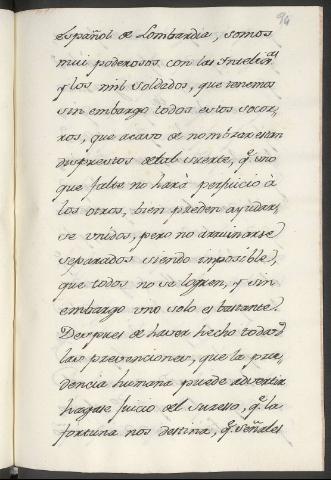 94
Español de Lombardia, somos
mui poderosos con las Intelig.as
y los mil soldados, que tenemos
sin embargo todos estos socor,,
ros, que acavo de nombrar estan
dispuestos de tal suerte, q.e uno
que falte no hará perjuicio à
los otros, bien pueden ayudar,
se unidos, pero no arruinarse
separados siendo imposible,
que todos no se logren, y sin
embargo uno solo es bastante.
Despues de haver hecho todas
las prevenciones, que la pru,,
dencia humana puede advertir
hagase Juicio del suceso, q.e la
fortuna nos destina, q.e señales